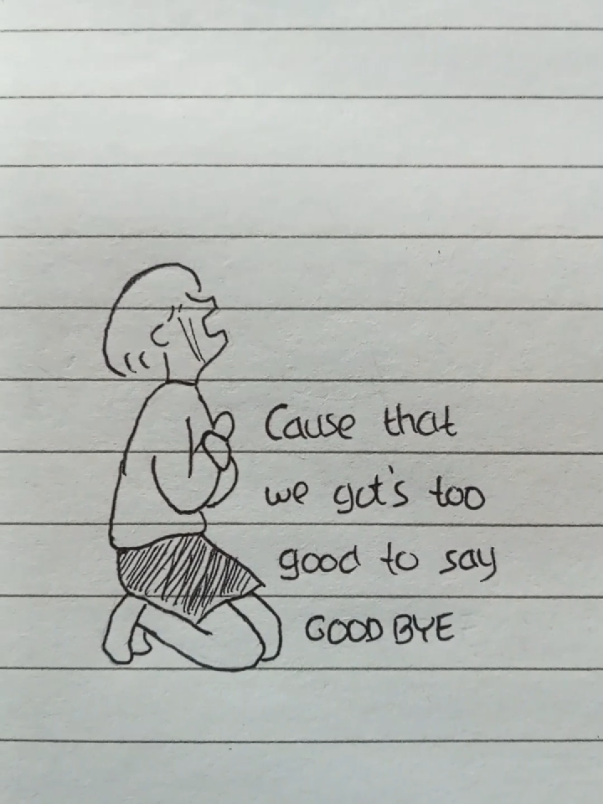 Cause that
we got's too
good to say
GOODBYE